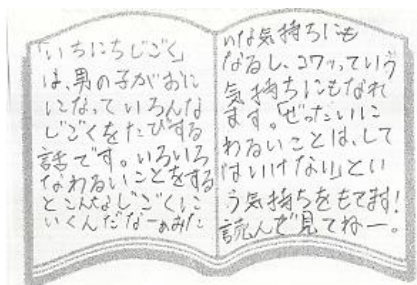 「いちにちじごく」
は、男の子がおに
になっていろんな
じごくをたびする
話です。いろいろ
なわるいことをする
とこんなじごくに
いくんだなーぁみた
いな気持ちにも
なるし、コワッっていう
気持ちにもなれ
ます。「ぜったいに
わるいことは、して
はいけない」とい
う気持ちをもてます!
読んで見てねー。